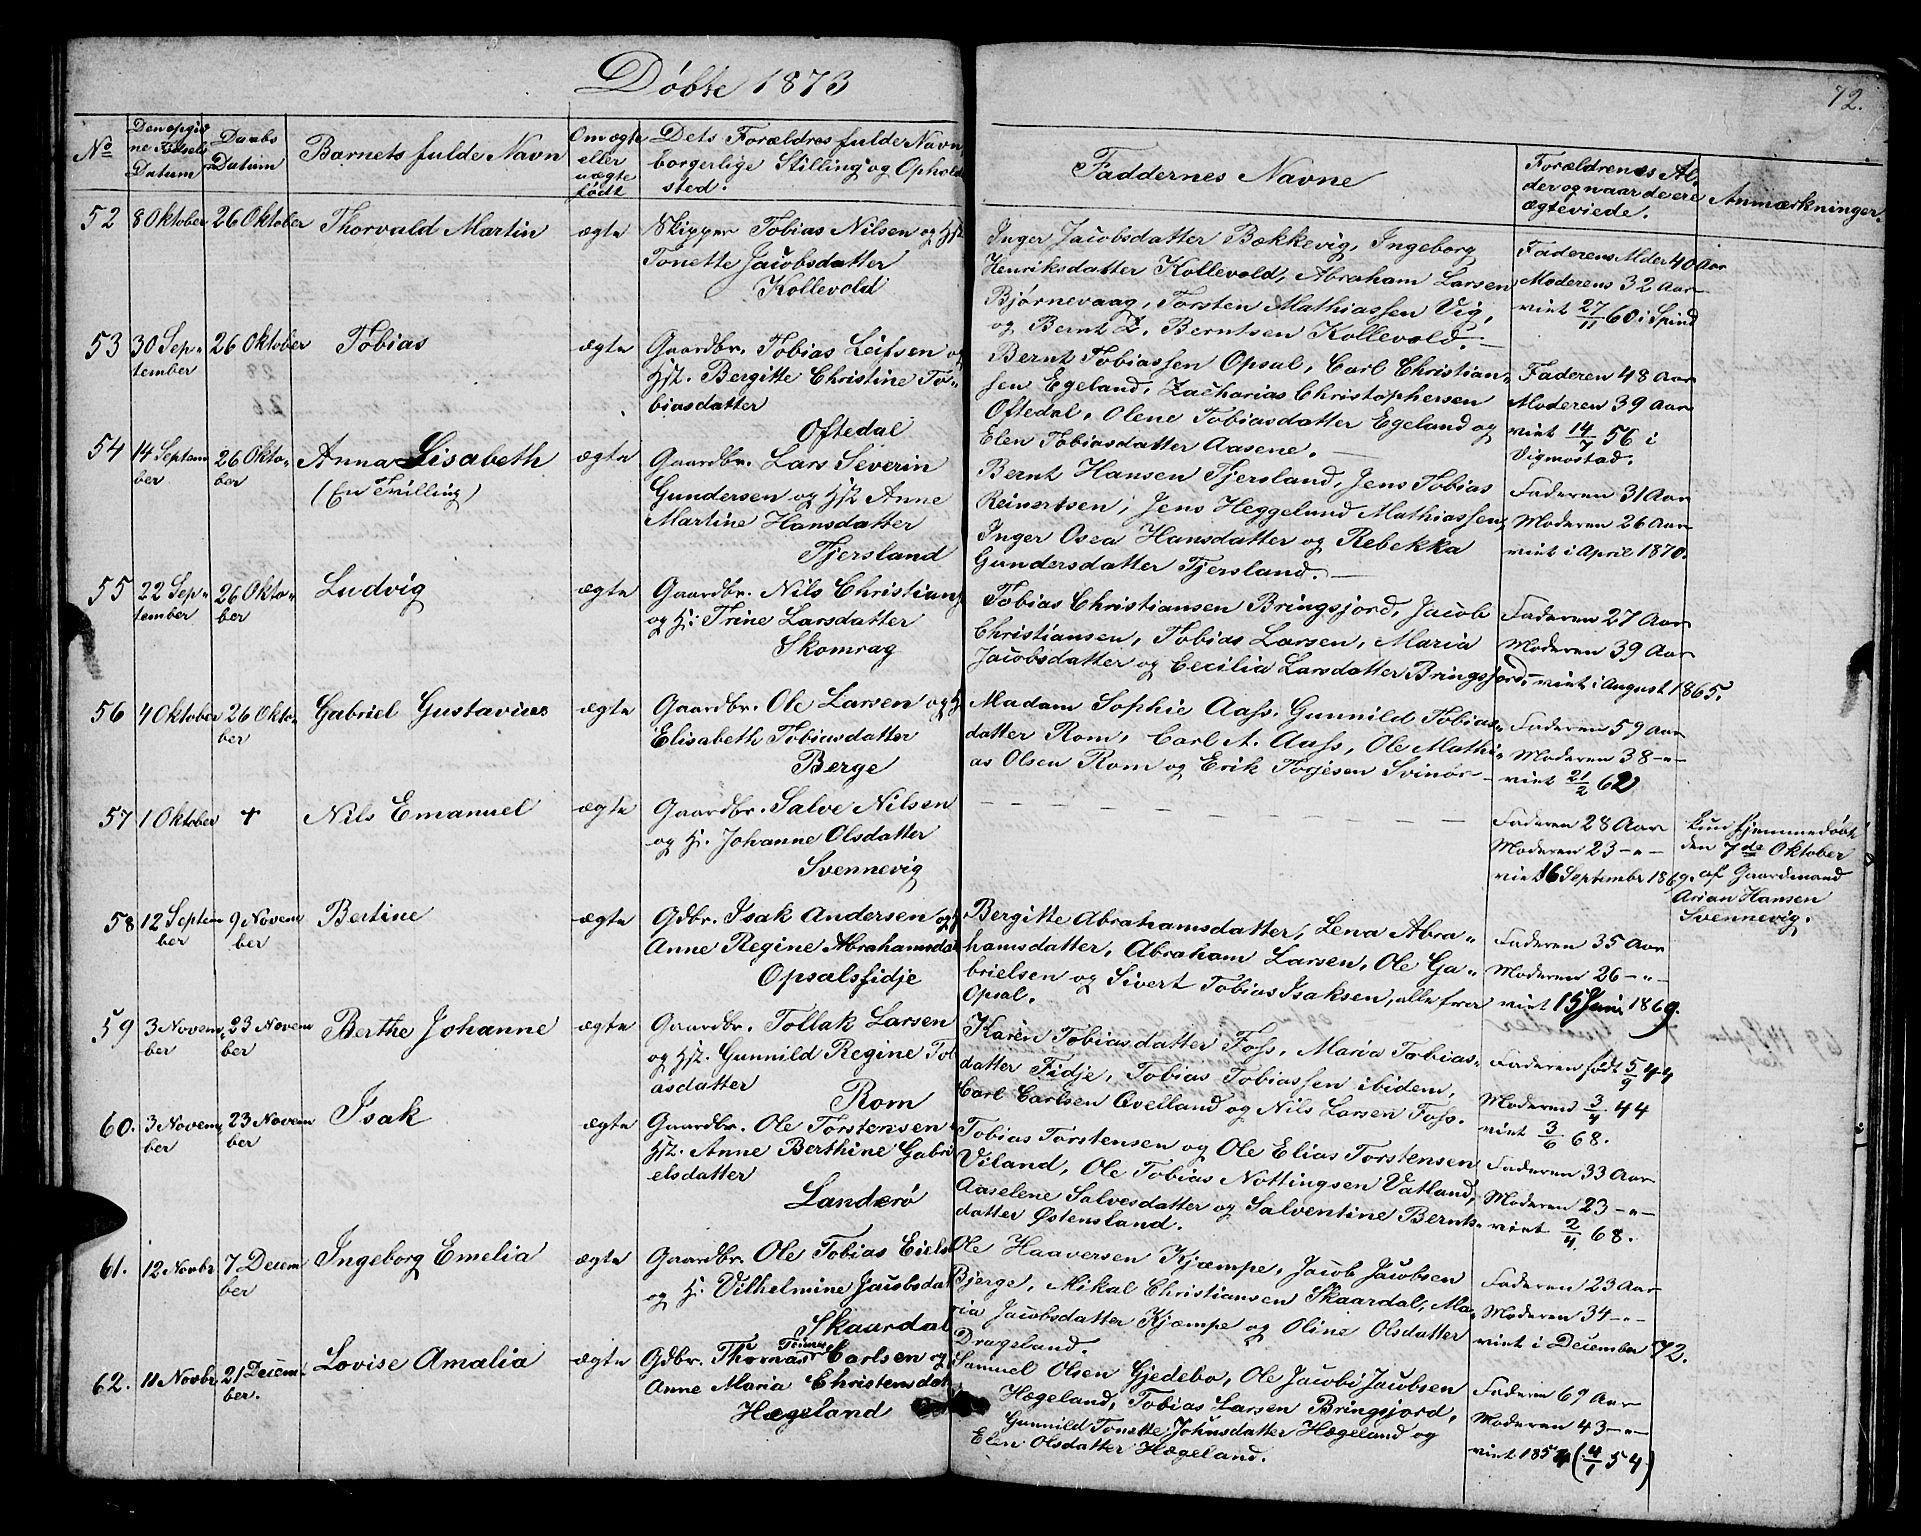 Döbte 1873
72.
No
Den opgivne Födsels Datum
Daabs Datum
Barnets fulde Navn
Om ægte eller uægte födt
Dets Forældres fulde Navn, borgerlige Stilling og Opholdsted.
Faddernes Navne
Forældrenes Alder og naar de ere ægteviede.
Anmærkninger.
52 8 Oktober 26 Oktober Thorvald Martin ægte
Skipper Tobias Nilsen og Hst.
Tonette Jacobsdatter
Kollevold
Inger Jacobsdatter Bækkevig, Ingeborg
Henriksdatter Kollevold, Abraham Larsen
Bjørnevaag, Torsten Mathiassen Vig,
og Bernt Z. Berntsen Kollevold.
Faderens Alder 40 Aar
Moderens 32 Aar
viet 27/11 60 i Spind
53 30 September 26 Oktober Tobias ægte
Gaardbr. Tobias Leifsen og
Hst. Bergitte Christine To-
biasdatter
Oftedal
Bernt Tobiassen Opsal, Carl Christian-
sen Egeland, Zacharias Christophersen
Oftedal, Olene Tobiasdatter Egeland og
Elen Tobiasdatter Aasene.
Faderen 48 Aar
Moderen 39 Aar
viet 14/7 56 i
Vigmostad.
54 14 September 26 Oktober Anna Lisabeth ægte
(En Tvilling)
Gaardbr. Lars Severin
Gundersen og Hst Anne
Martine Hansdatter
Tjersland
Bernt Hansen Tjersland, Jens Tobias
Reinertsen, Jens Heggelund Mathiassen,
Inger Osea Hansdatter og Rebekka
Gundersdatter Tjersland.
Faderen 31 Aar
Moderen 26 Aar
viet i April 1870.
55 22 September 26 Oktober Ludvig ægte
Gaardbr. Nils Christians
og H. Trine Larsdatter
Skomrag
Tobias Christiansen Bringsjord, Jacob
Christiansen, Tobias Larsen, Maria
Jacobsdatter og Cecilia Larsdatter Bringsjord.
Faderen 27 Aar
Moderen 39 Aar
viet i August 1865.
56 4 Oktober 26 Oktober Gabriel Gustavius ægte
Gaardbr. Ole Larsen og H.
Elisabeth Tobiasdatter
Berge
Madam Sophie Aass, Gunnild Tobias-
datter Rom, Carl A. Aass, Ole Mathi-
as Olsen Rom og Erik Torjesen Svinør
Faderen 59 Aar
Moderen 38 -"-
viet 21/2 62
57 1 Oktober + Nils Emanuel ægte
Gaardbr. Salve Nilsen
og H. Johanne Olsdatter
Svennevig
Faderen 28 Aar
Moderen 23 -"-
viet 16 September 1869.
Kun hjemmedøbt
den 7de Oktober
af Gaardmand
Arian Hansen
Svennevig.
58 12 September 9 November Bertine ægte
Gdbr. Isak Andersen og H
Anne Regine Abrahamsdat
Opsalsfidje
Bergitte Abrahamsdatter, Lena Abra-
hamsdatter, Abraham Larsen, Ole Ga-
brielsen og Sivert Tobias Isaksen, alle fra
Opsal.
Faderen 35 Aar
Moderen 26 -"-
viet 15 Juni 1869.
59 3 November 23 November Berthe Johanne ægte
Gaardbr. Tollak Larsen
og Hst. Gunnild Regine Tobi
asdatter
Rom
Karen Tobiasdatter Foss, Maria Tobias-
datter Fidje, Tobias Tobiassen ibidem,
Carl Carlsen Øvelland og Nils Larsen Foss.
Faderen født 5/9 44
Moderen 3/4 44
viet 3/6 68.
60. 3 November 23 November Isak ægte
Gaardbr. Ole Torstensen
Hst. Anne Berthine Gabri
elsdatter
Landerø
Tobias Torstensen og Ole Elias Torstensen
Viland, Ole Tobias Nottingsen Vatland,
Aaselene Salvesdatter og Salventine Bernts-
datter Østensland.
Faderen 33 Aar
Moderen 23 -"-
viet 2/4 68.
61. 12 Novbr. 7 December Ingeborg Emelia ægte
Gaardbr. Ole Tobias Eiels
og H. Vilhelmine Jacobsdat
Skaardal
Ole Haaversen Kjæmpe, Jacob Jacobsen
Bjerge, Mikal Christiansen Skaardal, Ma-
ria Jacobsdatter Kjæmpe og Oline Olsdatter
Drageland.
Faderen 23 Aar
Moderen 34 -"-
viet i December 72.
62. 11 Novbr. 21 December. Lovise Amalia ægte
Gdbr. Thomas Carlsen og
Anne Maria Christensdat
Hægeland
Samuel Olsen Gjedebo, Ole Jacobi Jacobsen
Hægeland, Tobias Larsen Bringsjord,
Gunnild Tonette Johnsdatter Hægeland og
Elen Olsdatter Hægeland.
Faderen 69 Aar
Moderen 43 -"-
viet 1854 (4/1 54)